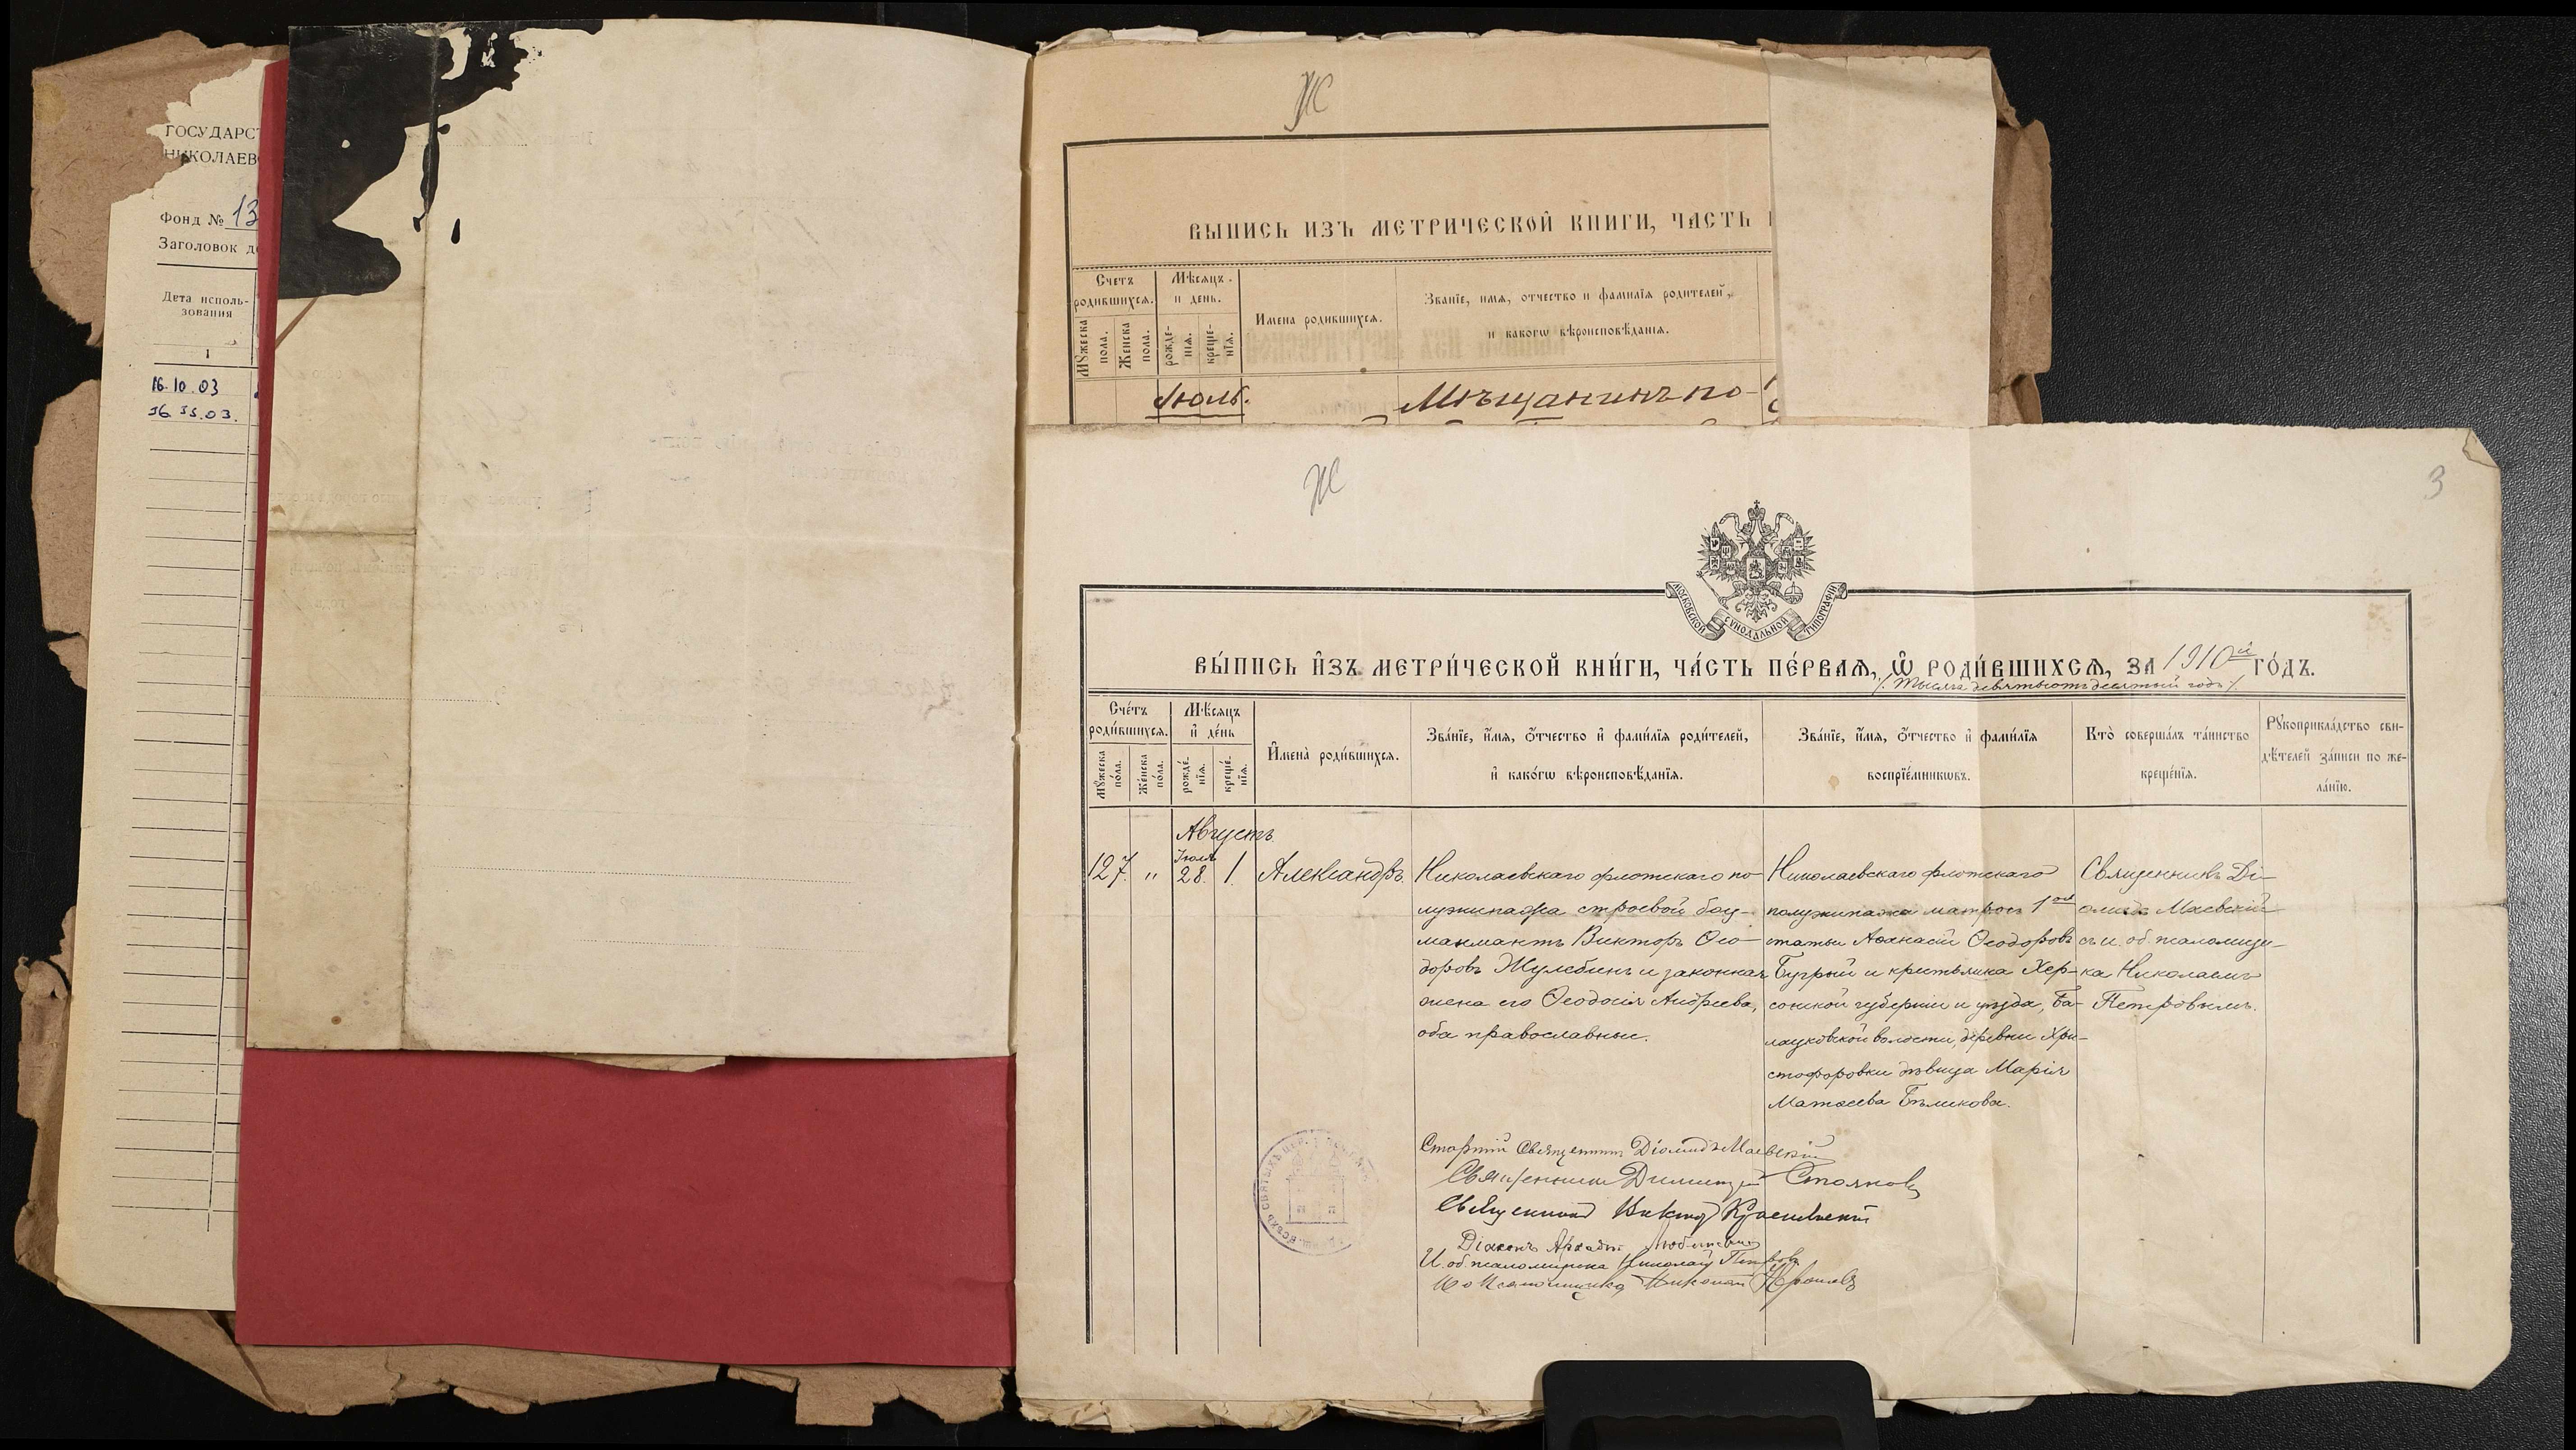 ГОСУДАРСТ
НИКОЛАЕВ
Фонд № 13
Заголовок д
Дата исполь-
зования
1
16.10.03
Ж
ВЫПИСЬ ИЗЪ МЕТРИЧЕСКОЙ КНИГИ, ЧАСТЬ
Счетъ
родившихся.
Мѣсяцъ
и день.
Мꙋжеска
пола.
Женска
пола.
рожде-
нїѧ.
креще-
нїѧ.
Имена родившихся.
Званїе, имѧ, отчество и фамилїѧ родителей,
и какогѡ вѣроисповѣданїѧ.
Іюль.
Мѣщанинъ по-
Ж
3
МОСКОВСКОЙ СѴНОДАЛЬНОЙ ТИПОГРАФІИ
ВЫ́ПИСЬ И҆ЗЪ МЕТРИ́ЧЕСКОЙ КНИ́ГИ, ЧА́СТЬ ПЕ́РВАѦ, Ѡ҆ РОДИ́ВШИХСѦ, ЗА 1910й ГО́ДЪ.
/. Тысяча девятьсотъ десятый годъ /.
Сче́тъ
роди́вшихсѧ.
Мѣ́сѧцъ
и҆ де́нь
Мꙋ́жеска
по́ла.
Же́нска
по́ла.
рожде́-
нїѧ.
креще́-
нїѧ.
И҆мена̀ роди́вшихсѧ.
Зва́нїе, и҆́мѧ, ѻ҆́тчество и҆ фами́лїѧ роди́телей,
и҆ како́гѡ вѣроисповѣ́данїѧ.
Зва́нїе, и҆́мѧ, ѻ҆́тчество и҆ фами́лїѧ
воспрїе́мникѡвъ.
Кто̀ соверша́лъ та́инство
креще́нїѧ.
Рꙋкоприкла́дство сви-
дѣ́телей за́писи по же-
ла́нїю.
Августъ
127. " Іюля 28. 1. Александръ
Николаевскаго флотскаго по-
луэкипажа строевой боц-
манматъ Викторъ Ѳео-
доровъ Жулебинъ и законная
жена его Ѳеодосія Андреева,
оба православные.
Николаевскаго флотскаго
полуэкипажа матросъ 1ой
статьи Аѳанасій Ѳеодоровъ
Бугрый и крестьянка Хер-
сонской губерніи и уѣзда, Ба-
лацковской волости, деревни Хри-
стофоровки дѣвица Марія
Матѳеева Бѣликова.
Священникъ Ді-
омидъ Маевскій
съ и. об. псаломщи-
ка Николаемъ
Петровымъ.
Старшій Священникъ Діомидъ Маевскій
Священникъ Димитрій Стояновъ
Священникъ Викторъ
Діаконъ Аркадій
И. об. псаломщика Николай Петровъ